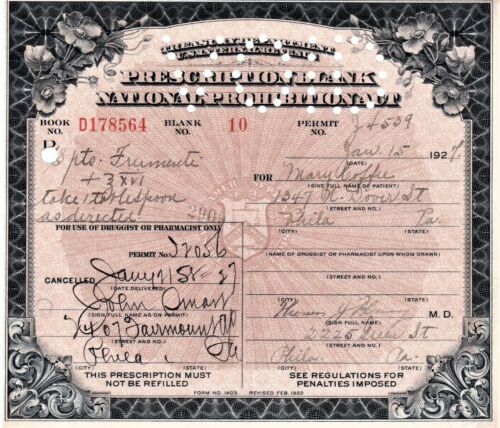 TREASURY DEPARTMENT
U.S. INTERNAL REVENUE
PRESCRIPTION BLANK
NATIONAL PROHIBITION ACT
BOOK NO. D178564 BLANK NO. 10 PERMIT NO. J4539
Jan. 15 1927
(DATE)
R
pts. Frumenti
FOR Mary Coffee
(GIVE FULL NAME OF PATIENT)
+ 3 XVI
take tablespoon
as directed
1347 N. Dover St
(STREET AND NO.)
Phila Pa.
(CITY) (STATE)
FOR USE OF DRUGGIST OR PHARMACIST ONLY
PERMIT NO. 52056
(NAME OF DRUGGIST OR PHARMACIST UPON WHOM DRAWN)
CANCELLED Jany 21st-27
(DATE DELIVERED)
(STREET AND NO.)
(CITY) (STATE)
John
(SIGN FULL NAME AS ON PERMIT)
M. D.
(SIGN FULL NAME)
2407 Fairmount
(STREET AND NO.)
2225 St
(STREET AND NO.)
Phila Pa
(CITY) (STATE)
Phila Pa.
(CITY) (STATE)
THIS PRESCRIPTION MUST
NOT BE REFILLED
SEE REGULATIONS FOR
PENALTIES IMPOSED
FORM NO. 1403 REVISED FEB. 1922